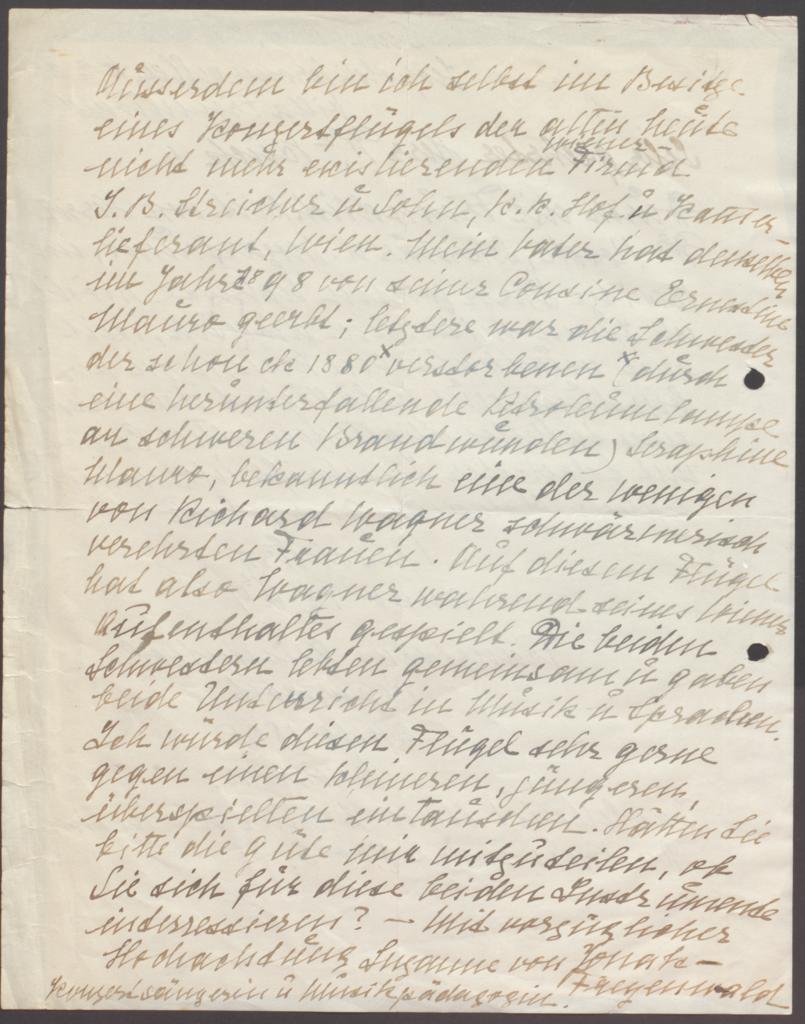 Ausserdem bin ich selbst im Besitze
eines Konzertflügels der alten heute
nicht mehr existierenden Wiener Firma
J. B. Streicher u Sohn, k. k. Hof u Kammer-
lieferant, Wien. Mein Vater hat denselben
im Jahr 1898 von seiner Cousine Ernestine
Mauro geerbt; letztere war die Schwester
der schon 1880 x verstorbenen x (durch
eine herunterfallende Petroleumlampe
an schweren Brandwunden) Seraphine
Mauro, bekanntlich eine der wenigen
von Richard Wagner schwärmerisch
verehrten Frauen. Auf diesem Flügel
hat also Wagner während seines Wiener
Aufenthaltes gespielt. Die beiden
Schwestern lebten gemeinsam u gaben
beide Unterricht in Musik u Sprachen.
Ich würde diesen Flügel sehr gerne
gegen einen kleineren, jüngeren,
überspielten eintauschen. Hätten Sie
bitte die Güte mir mitzuteilen, ob
Sie sich für diese beiden Instrumente
interressieren? – Mit vorzüglicher
Hochachtung Susanne von
Konzertsängerin u Musikpädagogin.